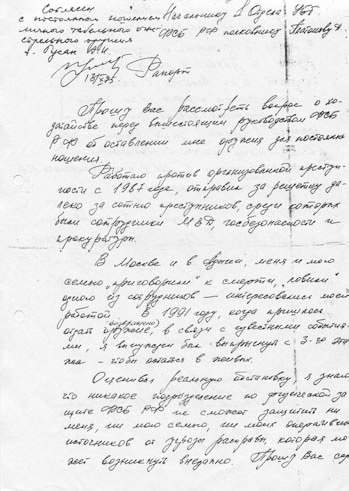 Согласен
с постоянным ношением Начальнику 1 отдела УБТ
личного табельного
стрелкового оружия ФСБ РФ полковнику Платонову
г. Гусак А.И.
Рапорт
Прошу Вас рассмотреть вопрос о хо-
датайстве перед вышестоящим руководством ФСБ
РФ об оставлении мне оружия для постоянного
ношения.
Работаю против организованной преступ-
ности с 1987 года, отправил за решетку да-
леко за сотню преступников, среди которых
были сотрудники МВД, госбезопасности и
прокуратуры.
В Москве и в меня и мою
семью „приговорили" к смерти, „ловили"
одного из сотрудников — интересовались моей
работой. В 1991 году, когда пришлось
сдать оружие, в связи с известными событи-
ями, я вынужден был выпрыгнуть с 3-го эта-
жа — чтобы остаться в живых.
Оценивая реальную обстановку, я знаю
что никакое подразделение по физической за-
щите ФСБ РФ не сможет защитить ни
меня, ни мою семью, ни моих оперативных
источников от угрозы расправы, которая мо-
жет возникнуть внезапно. Прошу Вас